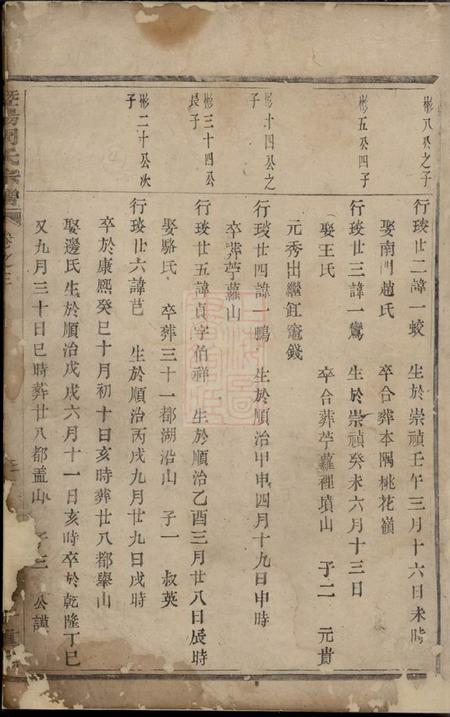 彬八公之子
行琰廿二諱一蛟 生於崇禎壬午三月十六日未時
娶南門趙氏 卒合葬本隅桃花嶺
彬五公四子
行琰廿三諱一鸞 生於崇禎癸未六月十三日
娶王氏 卒合葬苧蘿裡墳山 子二 元貴
元秀出繼釭竈錢
彬十四公之子
行琰廿四諱一鵬 生於順治甲申四月十九日申時
卒葬苧蘿山
彬三十四公長子
行琰廿五諱貞字伯祥 生於順治乙酉三月廿八日辰時
娶駱氏 卒葬三十一都湖沿山 子一 叔英
彬二十公次子
行琰廿六諱芑 生於順治丙戌九月廿九日戌時
卒於康熙癸巳十月初十日亥時葬廿八都舉山
娶邊氏生於順治戊戌六月十一日亥時卒於乾隆丁巳
又九月三十日巳時葬廿八都盖山 子三 公謨
暨陽周氏宗譜 卷之三